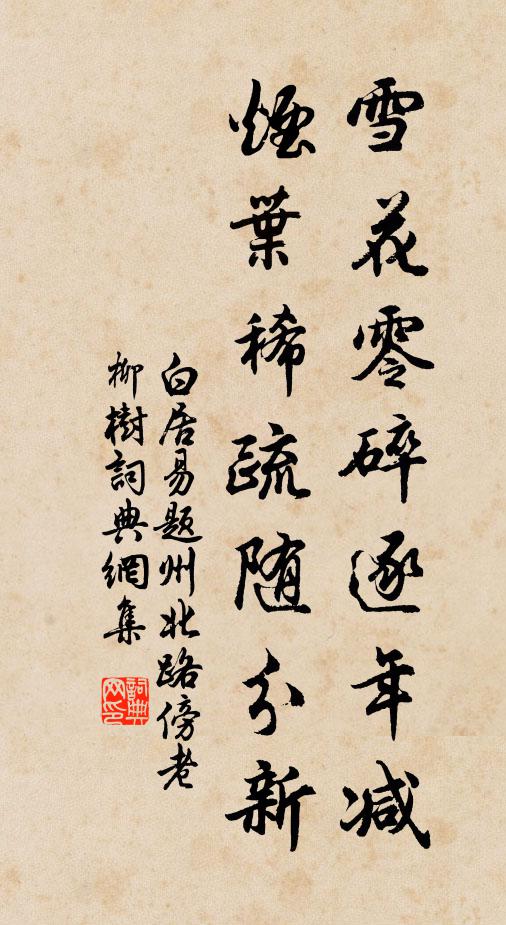 雪花零碎逐年减
煙葉稀疏随分新
白居易题州北路傍老
柳樹詞典網集
詞典
网印